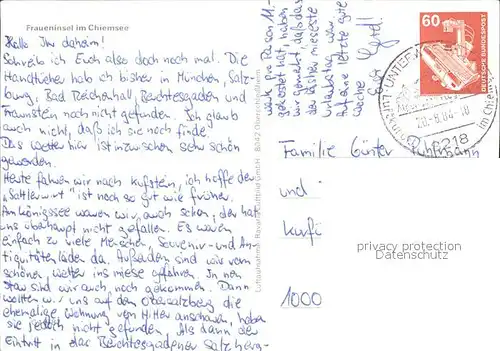 Fraueninsel im Chiemsee
Hallo Ihr daheim!
Schreib ich Euch also doch noch mal. Die
Handtücher hab ich bisher in München, Salz-
burg, Bad Reichenhall, Berchtesgaden und
Traunstein noch nicht gefunden. Ich glaub
auch nicht, daß ich sie noch finde.
Das Wetter hier ist inzwischen sehr schön
geworden.
Heute fahren wir nach Kufstein, ich hoffe der
"Sattlerwirt" ist noch so gut wie früher.
Am Königssee waren wir auch schon, der hat
uns überhaupt nicht gefallen. Es waren
einfach zu viele Menschen, Souvenir- und An-
tiquitätenläden da. Außerdem sind wir vom
schönen Wetter ins miese gefahren. In nen
Stau sind wir auch noch gekommen. Dann
wollten wir uns auf den Obersalzberg die
ehemalige Wohnung von Hitler anschauen, haben
sie jedoch nicht gefunden. Als dann der
Eintritt in das Berchtesgadener Salzberg-
werk pro Person 11.-
gekostet hat, haben
wir gemerkt, daß das
der bisher mieseste
Urlaubstag war.
Auf eine letzte gute
Woche
Eure Gerd!
60
DEUTSCHE BUNDESPOST
8218
im Chiem
Familie Günter
und
Kurfi
1000
privacy protection
Datenschutz